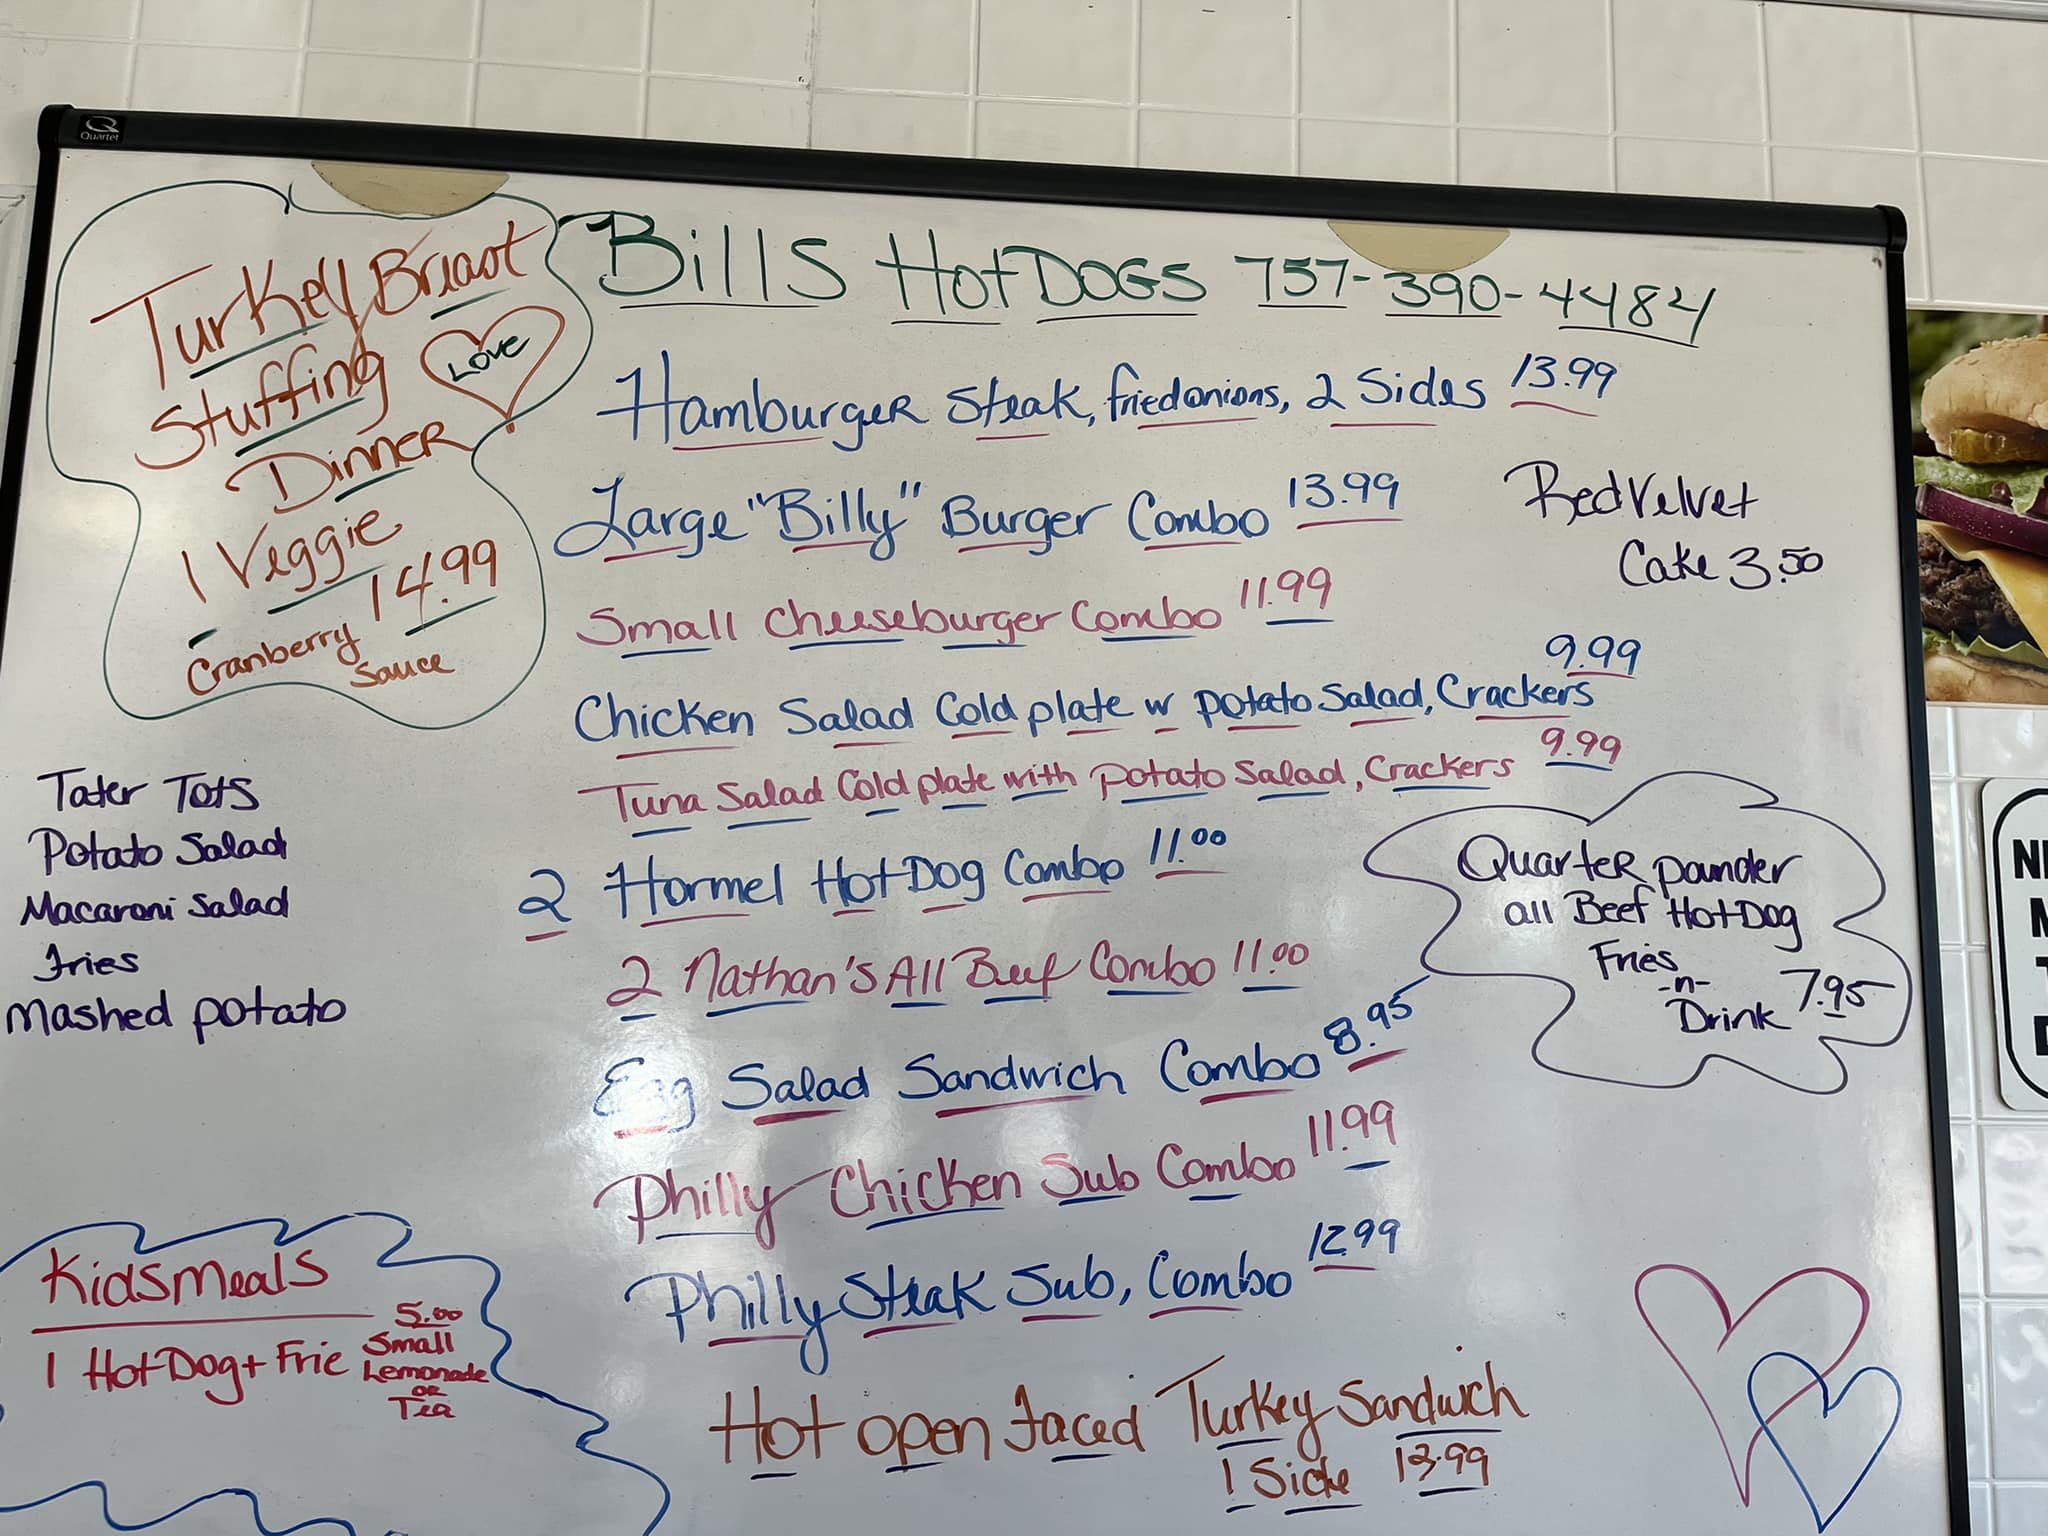 Quartet
Turkey Breast
Stuffing
LOVE
Dinner
1 Veggie
14.99
Cranberry
Sauce
Bills Hot DOGS 757-390-4484
Hamburger Steak, fried onions, 2 Sides 13.99
Large "Billy" Burger Combo 13.99
Small Cheeseburger Combo 11.99
Chicken Salad Cold plate w potato Salad, Crackers 9.99
Tuna Salad Cold plate with potato Salad, Crackers 9.99
2 Hormel Hot Dog Combo 11.00
2 Nathan's All Beef Combo 11.00
Egg Salad Sandwich Combo 8.95
Philly Chicken Sub Combo 11.99
Philly Steak Sub, Combo 12.99
Hot open faced Turkey Sandwich
1 Side
Red Velvet
Cake 3.50
Quarter pounder
all Beef Hot Dog
Fries
-n-
Drink 7.95
Tater Tots
Potato Salad
Macaroni Salad
Fries
Mashed potato
Kids Meals
5.00
1 Hot Dog + Frie Small
Lemonade
or
Tea